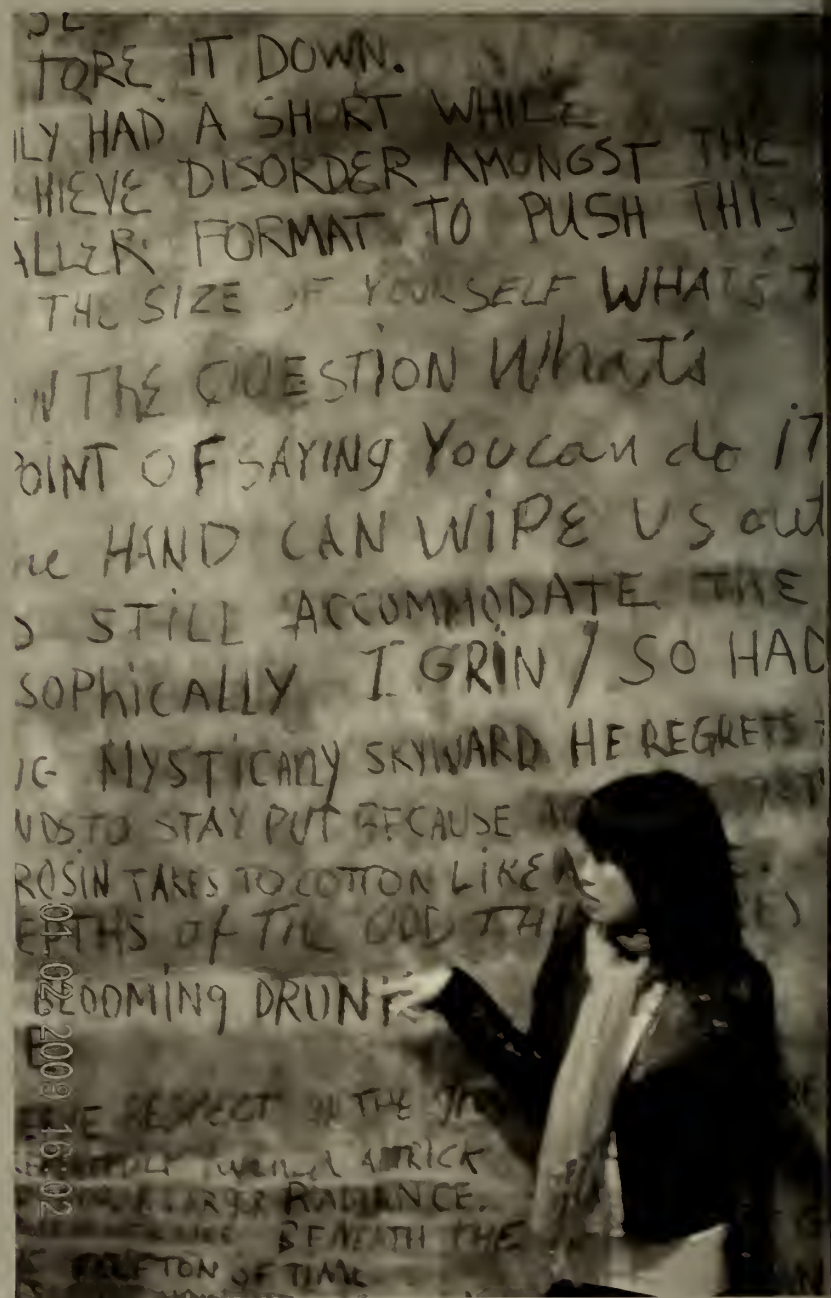 TORE IT DOWN.
ILY HAD A SHORT WHILE
HIEVE DISORDER AMONGST THE
ALLER FORMAT TO PUSH THIS
THE SIZE OF YOURSELF WHAT'S T
N ThE QUESTION What's
OINT OF SAYING You can do iT
HAND CAN WiPE US out
STiLL ACCOMMODATE THE
SOPhiCALLY I GRiN / SO HAD
MYSTiCAlly SKYWARD HE REGRETS
NDS TO STAY PUT BECAUSE
ROSIN TAKES TO COTTON LiKE A
EPTHS Of THE ODD
BLOOMiNg DRUNK
RESPECT IN THE
A TRICK
LARGER RADIANCE.
BENEATH THE
OF TIME
01 02 2009 16:02